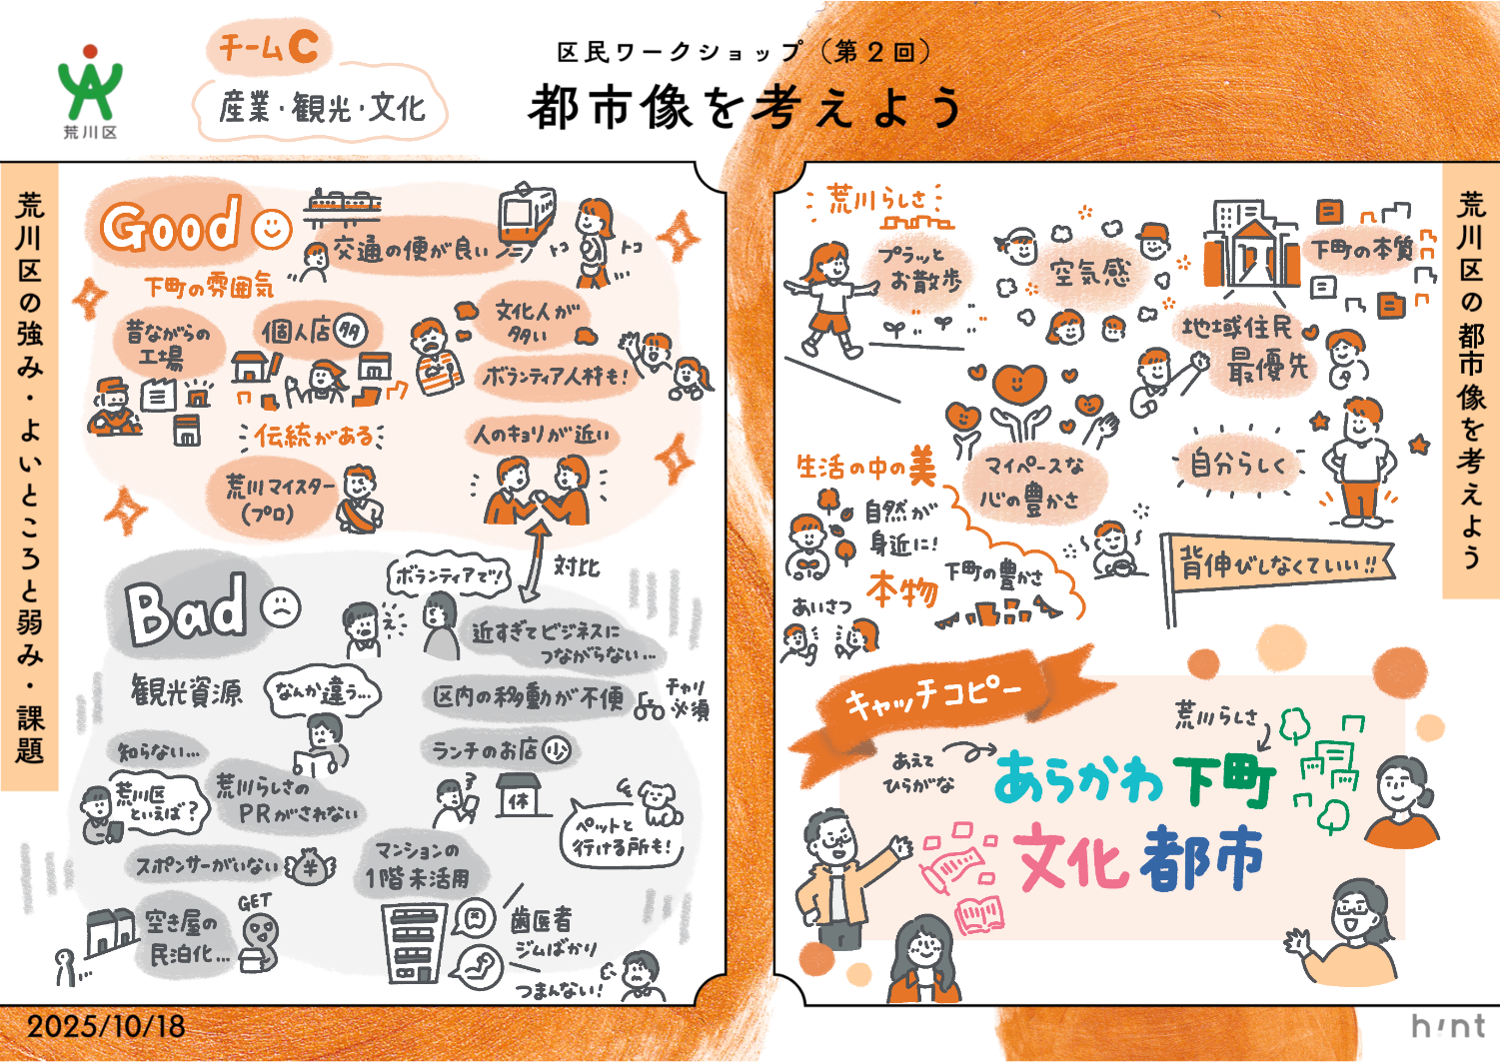 荒川区
チームC
産業・観光・文化
区民ワークショップ（第2回）
都市像を考えよう
荒川区の強み・よいところと弱み・課題
Good
交通の便が良い
トコ
トコ
下町の雰囲気
昔ながらの
工場
個人店 多
文化人が
多い
ボランティア人材も!
伝統がある
人のキョリが近い
荒川マイスター
(プロ)
対比
Bad
ボランティアで!
え
近すぎてビジネスに
つながらない…
観光資源
なんか違う…
区内の移動が不便
チャリ
必須
知らない…
ランチのお店 少
荒川区
といえば?
荒川らしさの
PRがされない
休
ペットと
行ける所も!
スポンサーがいない
¥
マンションの
1階未活用
空き屋の
民泊化…
GET
歯医者
ジムばかり
つまんない!
荒川区の都市像を考えよう
荒川らしさ
プラッと
お散歩
空気感
下町の本質
地域住民
最優先
マイペースな
心の豊かさ
自分らしく
生活の中の美
自然が
身近に!
本物
下町の豊かさ
あいさつ
背伸びしなくていい!!
キャッチコピー
あえて
ひらがな
荒川らしさ
あらかわ下町
文化都市
2025/10/18
hint